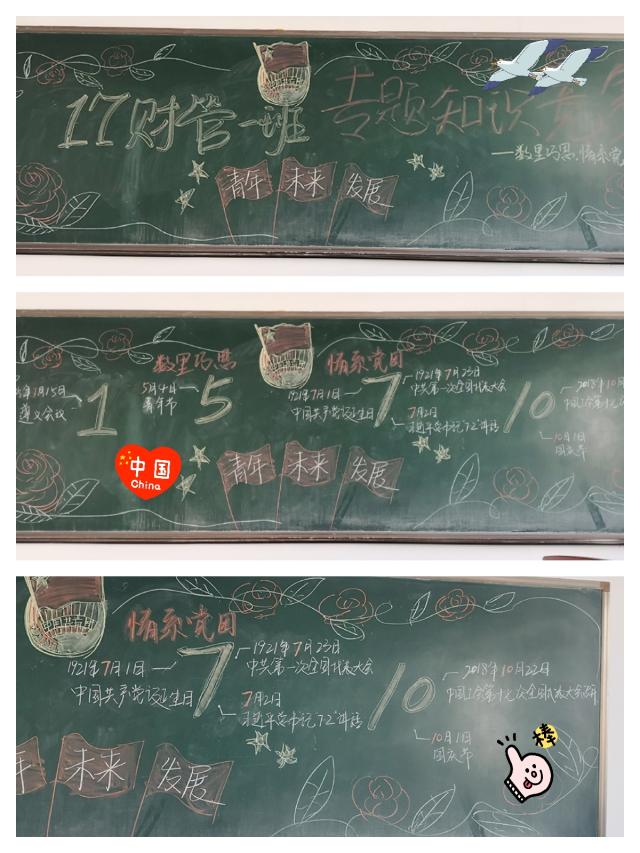 17财管一班
专题知识竞
一数里巧思.情系党
青年 未来 发展
数里巧思
情系党日
1月15日
遵义会议
1
5月4日
青年节
5
1921年7月1日
中国共产党诞生日
7
1921年7月23日
中共第一次全国代表大会
7月2日
习近平总书记"7.2"讲话
10
2018年10月
10月1日
国庆节
中国
China
青年 未来 发展
情系党日
1921年7月1日
中国共产党诞生日
7
1921年7月23日
中共第一次全国代表大会
7月2日
习近平总书记"7.2"讲话
10
2018年10月22日
中国工会第十七次全国代表大会召开
10月1日
国庆节
棒
年 未来 发展